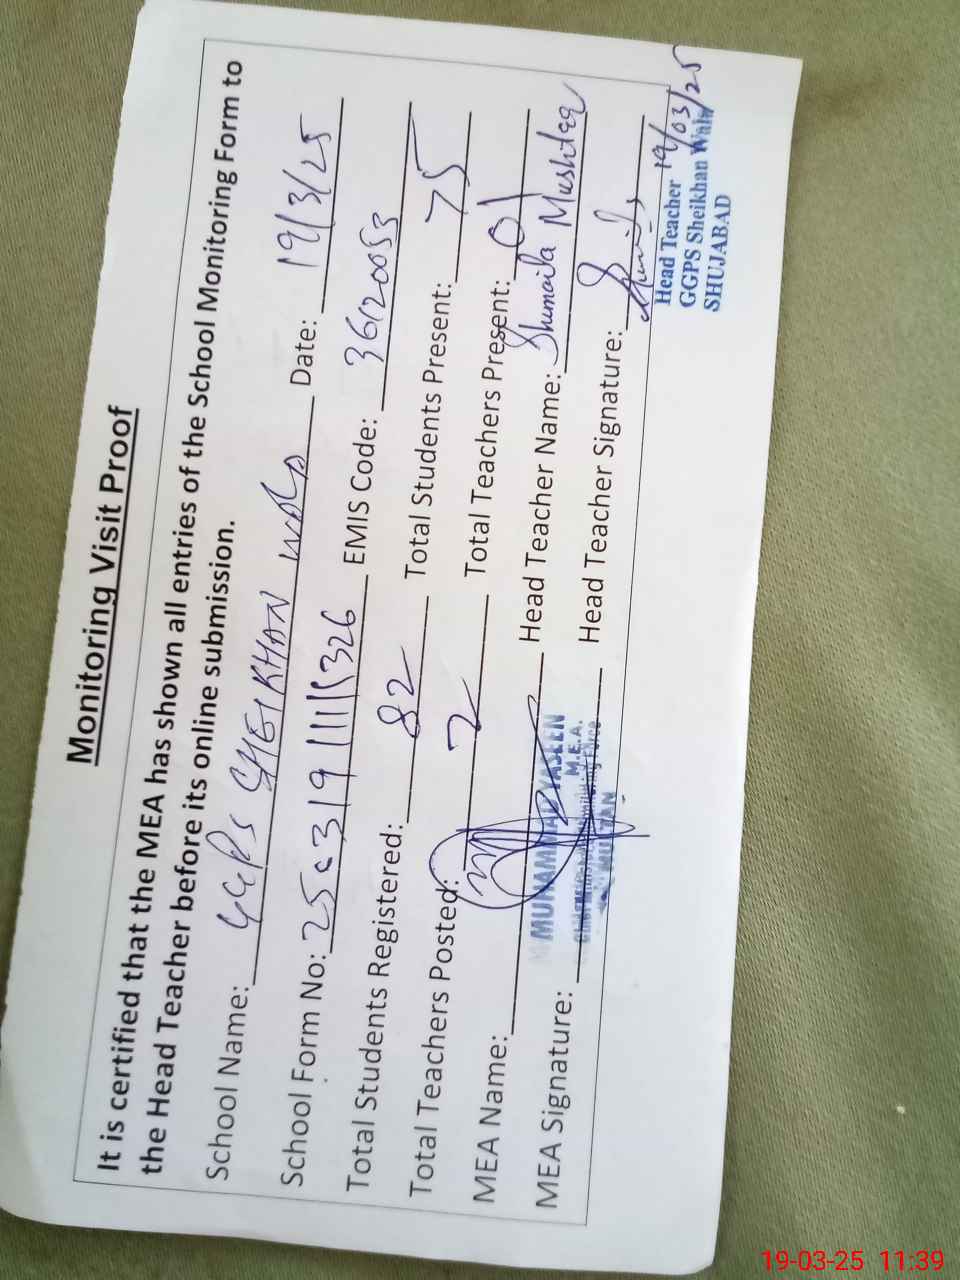 Monitoring Visit Proof
It is certified that the MEA has shown all entries of the School Monitoring Form to
the Head Teacher before its online submission.
School Name: GGPS SHEIKHAN WALA Date: 19/3/25
School Form No: 319111326 EMIS Code: 36120053
Total Students Registered: 82 Total Students Present: 75
Total Teachers Posted: 2 Total Teachers Present: 01
MEA Name: MUHAMMAD YASEEN Head Teacher Name: Shumaila Mushtaq
M.E.A.
MEA Signature: Head Teacher Signature:
MULTAN
Head Teacher 19/03/25
GGPS Sheikhan Wala
SHUJABAD
19-03-25 11:39